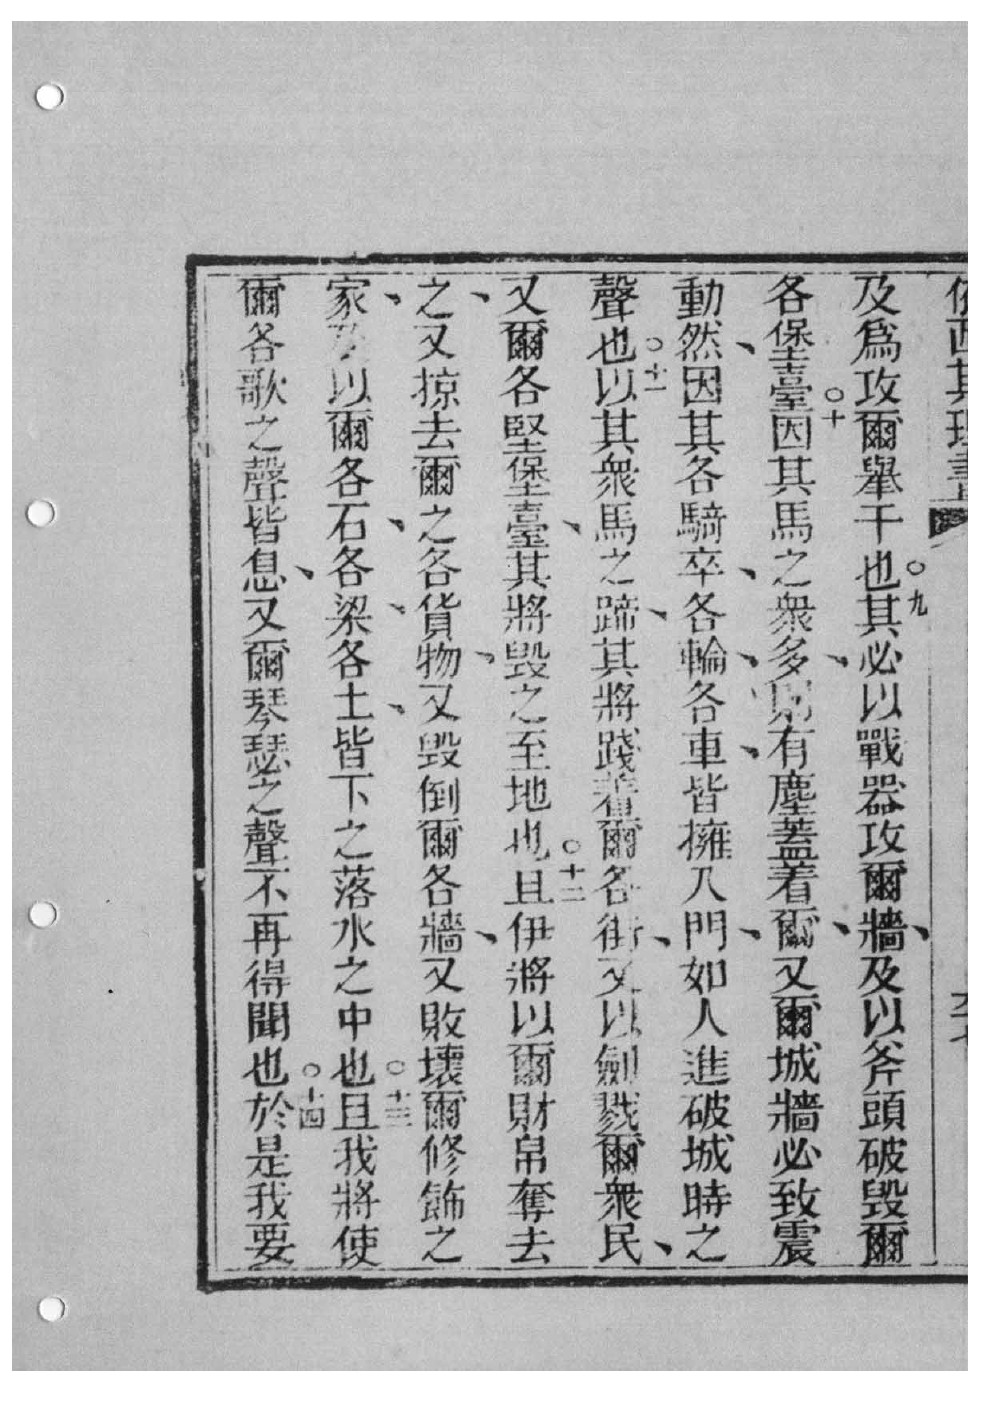 依西其理書
及爲攻爾舉干也○九其必以戰器攻爾牆、及以斧頭破毀爾
各堡臺○十因其馬之衆多、則有塵蓋着爾、又爾城牆必致震
動、然因其各騎卒、各輪、各車、皆擁入門、如人進破城時之
聲也○十一以其衆馬之蹄、其將踐着爾各街、又以劍戮爾衆民、
又爾各堅堡臺、其將毀之至地也○十二且伊將以爾財帛奪去
之、又掠去爾之各貨物、又毀倒爾各牆、又敗壞爾修飾之
家、及以爾各石、各梁、各土、皆下之落水之中也○十三且我將使
爾各歌之聲皆息、又爾琴瑟之聲不再得聞也○十四於是我要